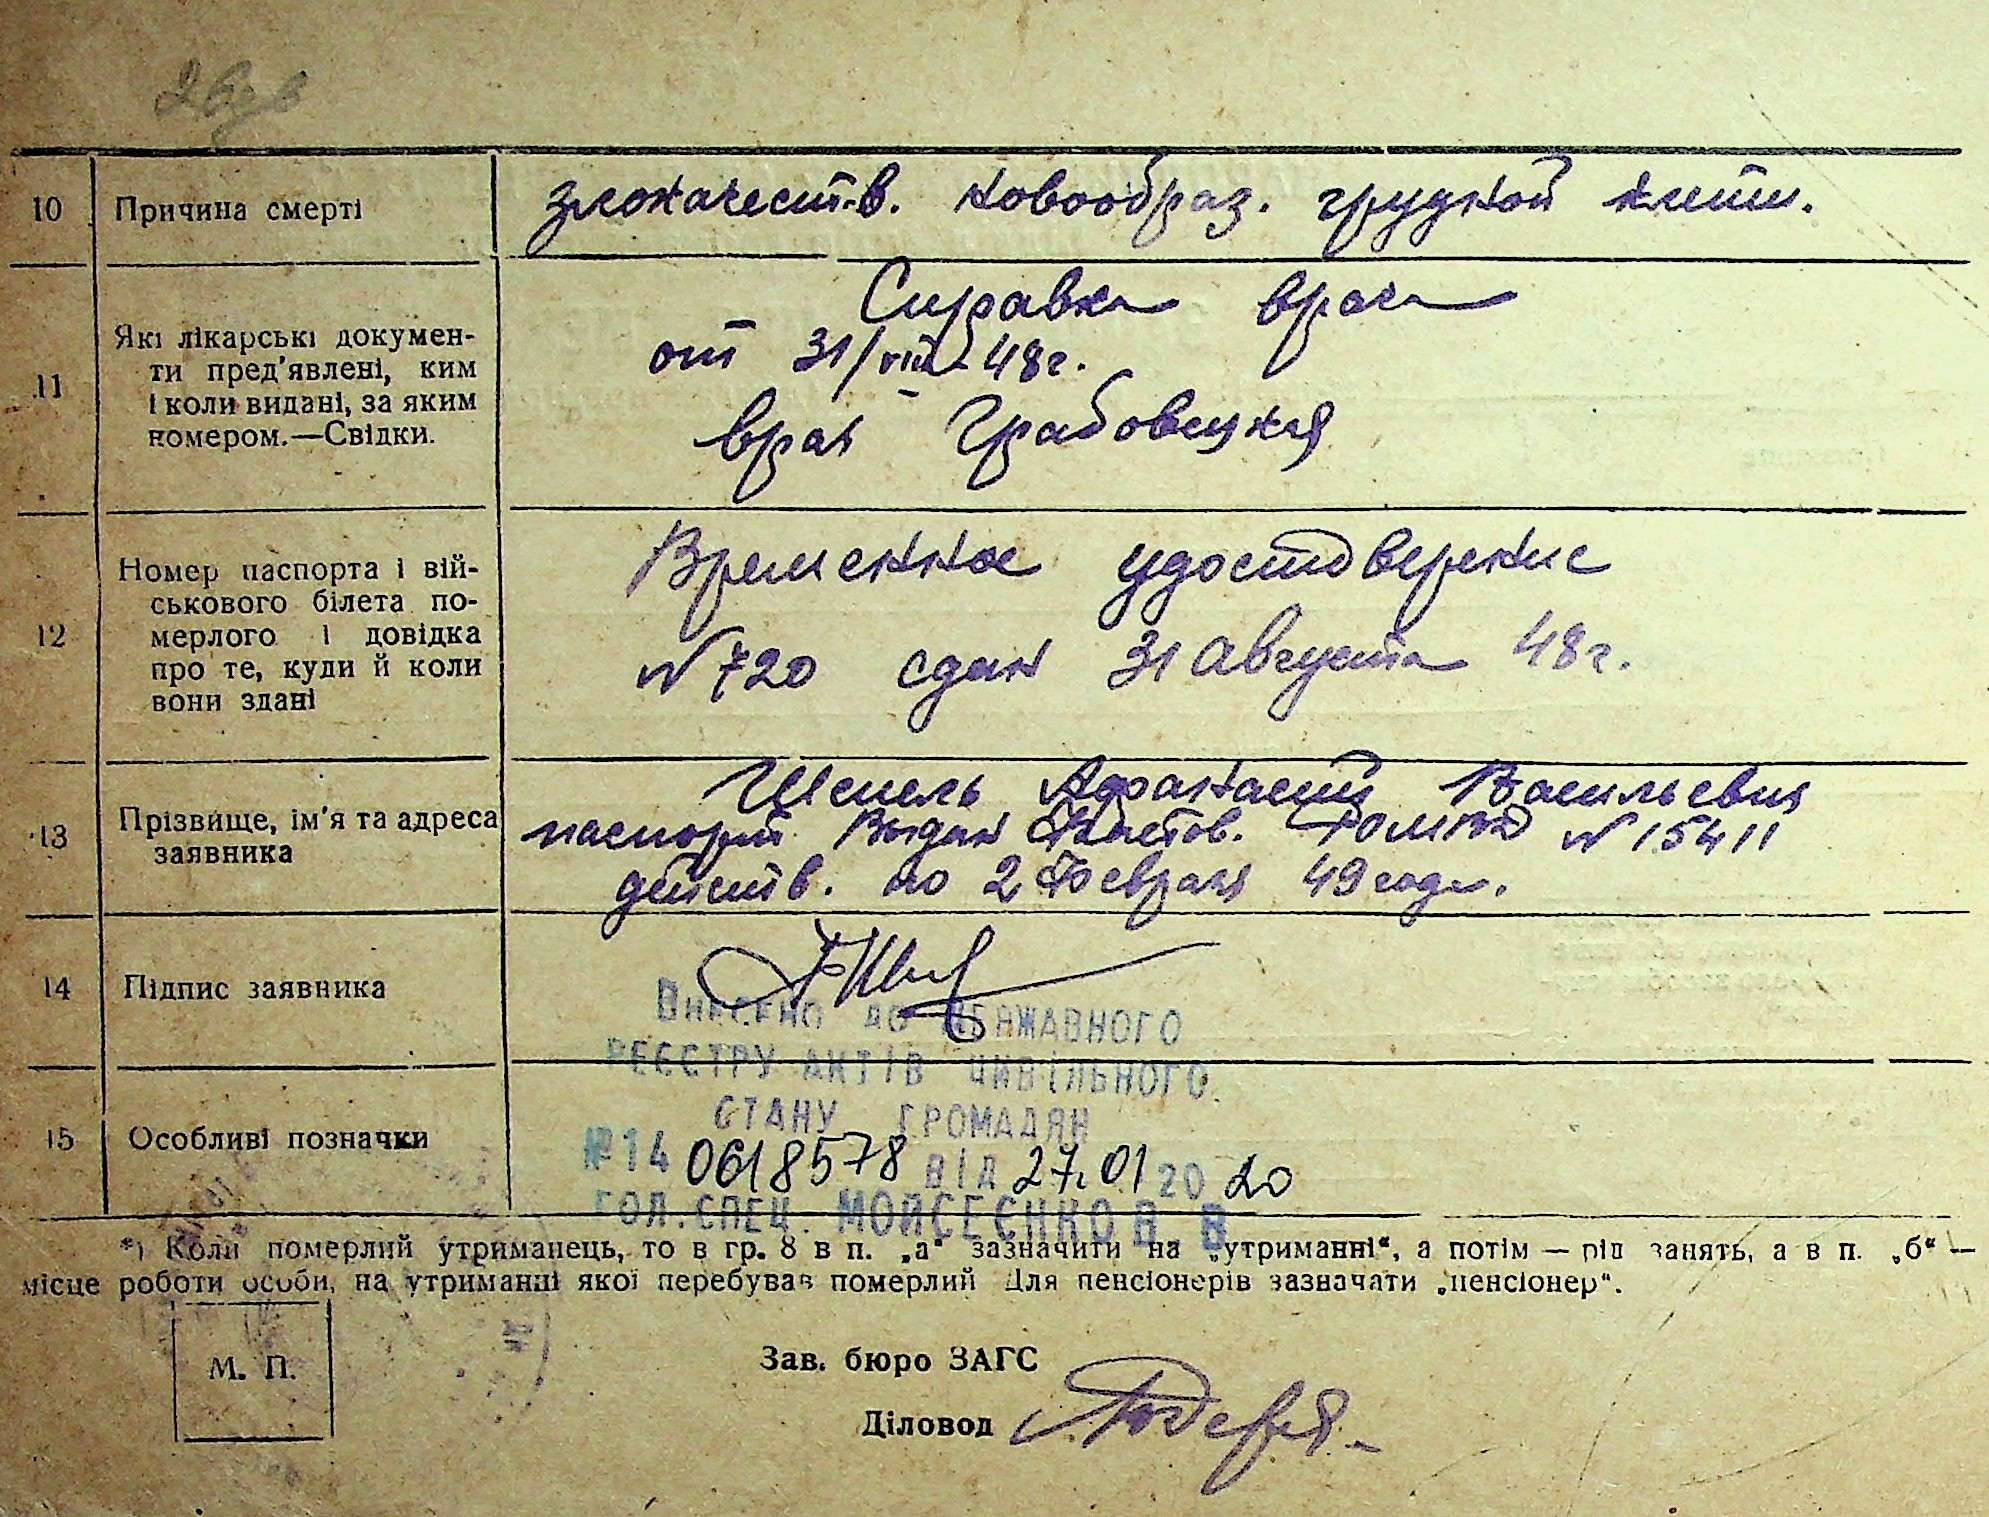 10 Причина смерті злокачеств. новообраз. грудной клетки.
Справка врача
11 Які лікарські докумен-
ти пред'явлені, ким
і коли видані, за яким
номером.—Свідки.
от 31/VIII-48г.
врач Грабовецкая
12 Номер паспорта і вій-
ськового білета по-
мерлого і довідка
про те, куди й коли
вони здані
Временное удостоверение
N 720 сдан 31 августа 48г.
13 Прізвище, ім'я та адреса
заявника
Шепель Афанасий Васильевич
паспорт выдан N 15411
действ. по 2 февраля 49 года.
14 Підпис заявника
15 Особливі позначки
Внесено до Державного
реєстру актів цивільного
стану громадян
№14 0618578 від 27.01 20 20
гол. спец. Мойсеєнко В. В
*) Коли померлий утриманець, то в гр. 8 в п. „а" зазначити на „утриманні", а потім — рід занять, а в п. „б" —
місце роботи особи, на утриманні якої перебував померлий Для пенсіонерів зазначати „пенсіонер".
М. П.
Зав. бюро ЗАГС
Діловод